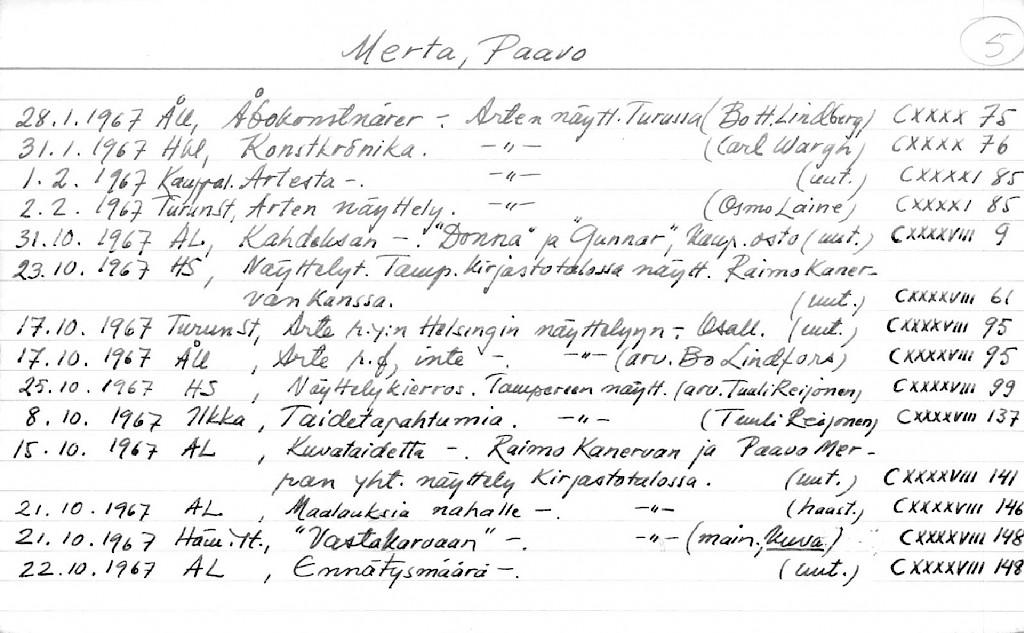 Merta, Paavo
5
28.1.1967 ÅU, Åbokonstnärer -. Arten näytt. Turussa (Bo H. Lindberg) CXXXX 75
31.1.1967 Hbl, Konstkrönika. -"- (Carl Wargh) CXXXX 76
1.2.1967 Kauppal. Artesta -. -"- (uut.) CXXXXI 85
2.2.1967 Turunst, Arten näyttely. -"- (Osmo Laine) CXXXXI 85
31.10.1967 AL, Kahdeksan -. "Donna" ja "Gunnar", kaup. osto (uut.) CXXXXVIII 9
23.10.1967 HS, Näyttelyt. Tamp. Kirjastotalossa näytt. Raimo Kaner-
van kanssa. (uut.) CXXXXVIII 61
17.10.1967 Turunst, Arte r.y:n Helsingin näyttelyyn -. Osall. (uut.) CXXXXVIII 95
17.10.1967 ÅU, Arte r.f, inte -. -"- (arv. Bo Lindfors) CXXXXVIII 95
25.10.1967 HS, Näyttelykierros. Tampereen näytt. (arv. Tuuli Reijonen) CXXXXVIII 99
8.10.1967 Ilkka, Taidetapahtumia. -"- (Tuuli Reijonen) CXXXXVIII 137
15.10.1967 AL, Kuvataidetta -. Raimo Kanervan ja Paavo Mer-
ran yht. näyttely Kirjastotalossa. (uut.) CXXXXVIII 141
21.10.1967 AL, Maalauksia nahalle -. -"- (haast.) CXXXXVIII 146
21.10.1967 "Vastakarvaan" -. -"- (main., kuva) CXXXXVIII 148
22.10.1967 AL, Ennätysmäärä -. (uut.) CXXXXVIII 148